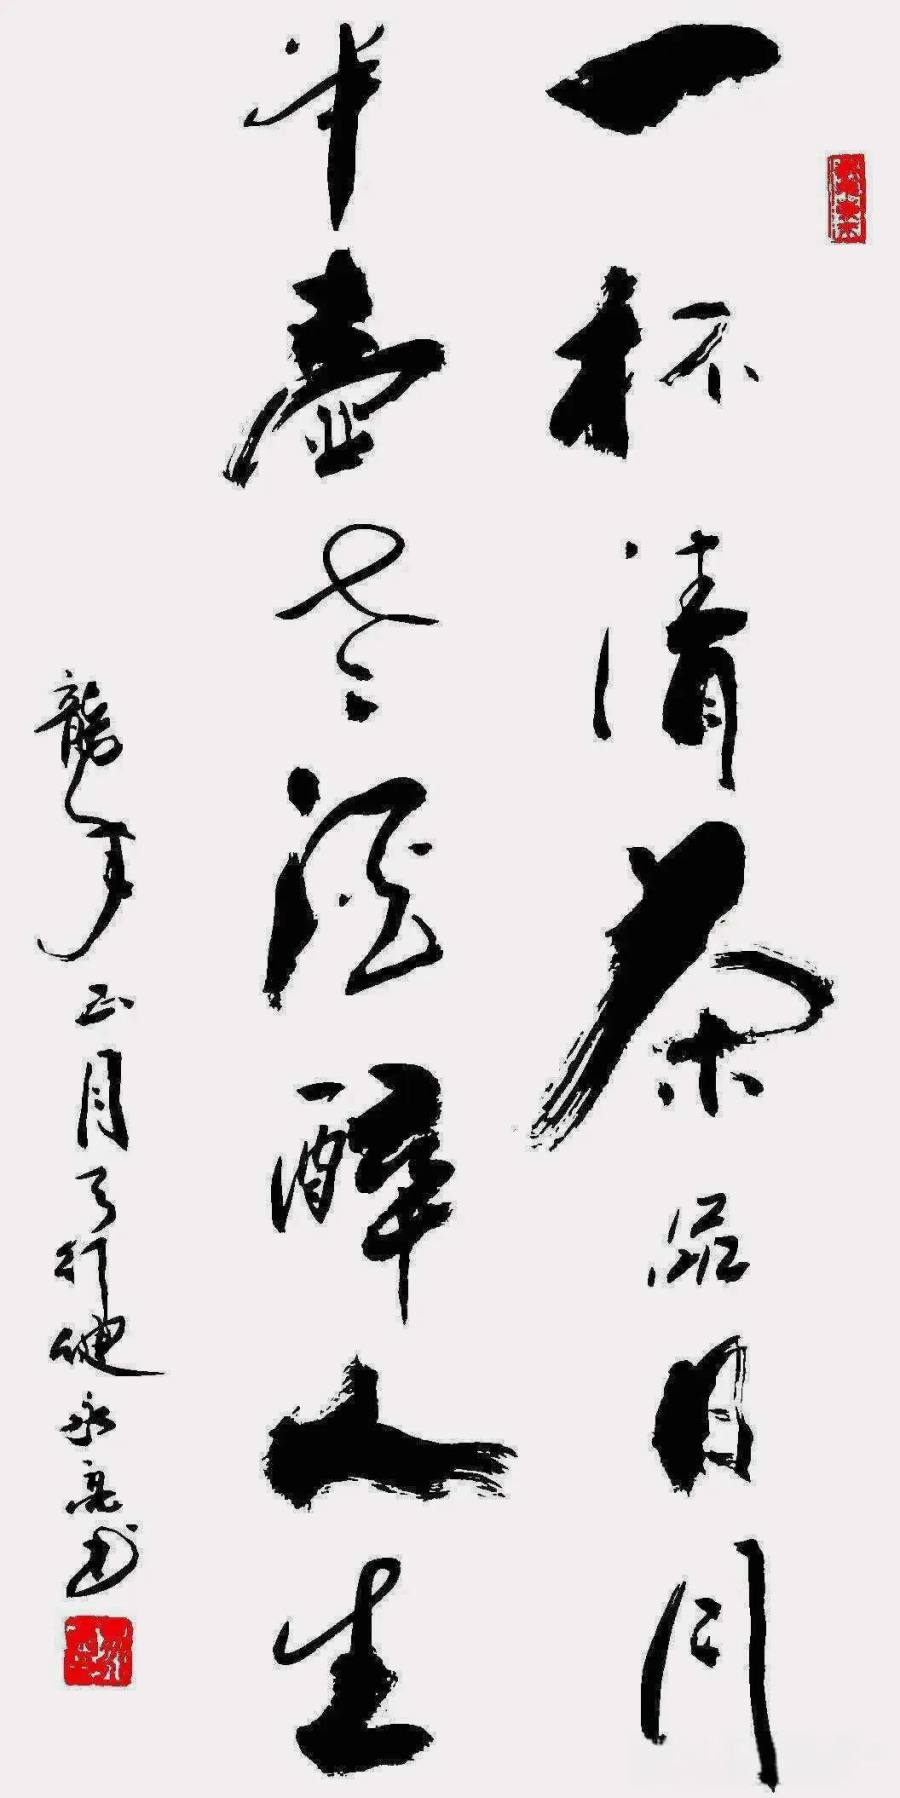 一杯清茶品日月
半壶老酒醉人生
龍年正月于行健永亮书